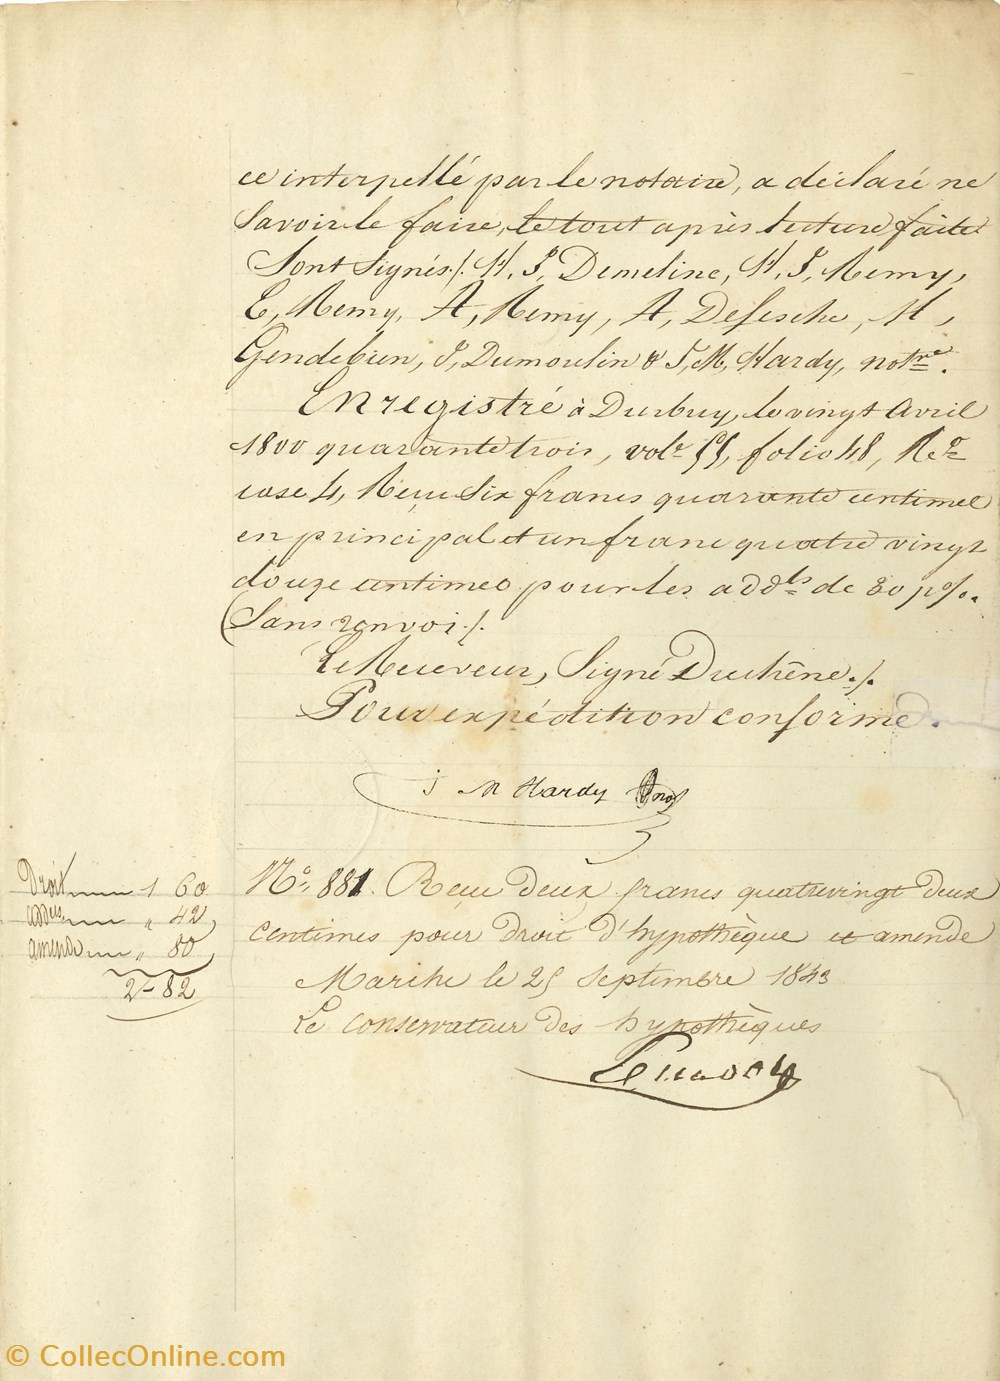 ce interpellé par le notaire, a déclaré ne
Savoir le faire, le tout après lecture faite
Sont Signés ./. H, J, Demeline, H, J, Remy,
E, Remy, A, Remy, A, Defesche, M,
Gendebien, J, Dumoulin & J, M, Hardy, notre.
Enregistré à Durbuy, le vingt Avril
1800 quarante trois, vole 55, folio 48, Reto
case 4, Reçu Six francs quarante centimes
en principal et un franc quatre vingt
douze centimes pour les addls de 30 p%.
(Sans renvoi ./.
Le Receveur, Signé Duchêne ./.
Pour expédition conforme.
J M Hardy not
Droit 1 60
addls " 42
amende " 80
2 - 82
No 881. Reçu deux francs quatrevingt deux
centimes pour droit d'hypothèque et amende
Marche le 25 Septembre 1843
Le conservateur des hypothèques
© CollecOnline.com